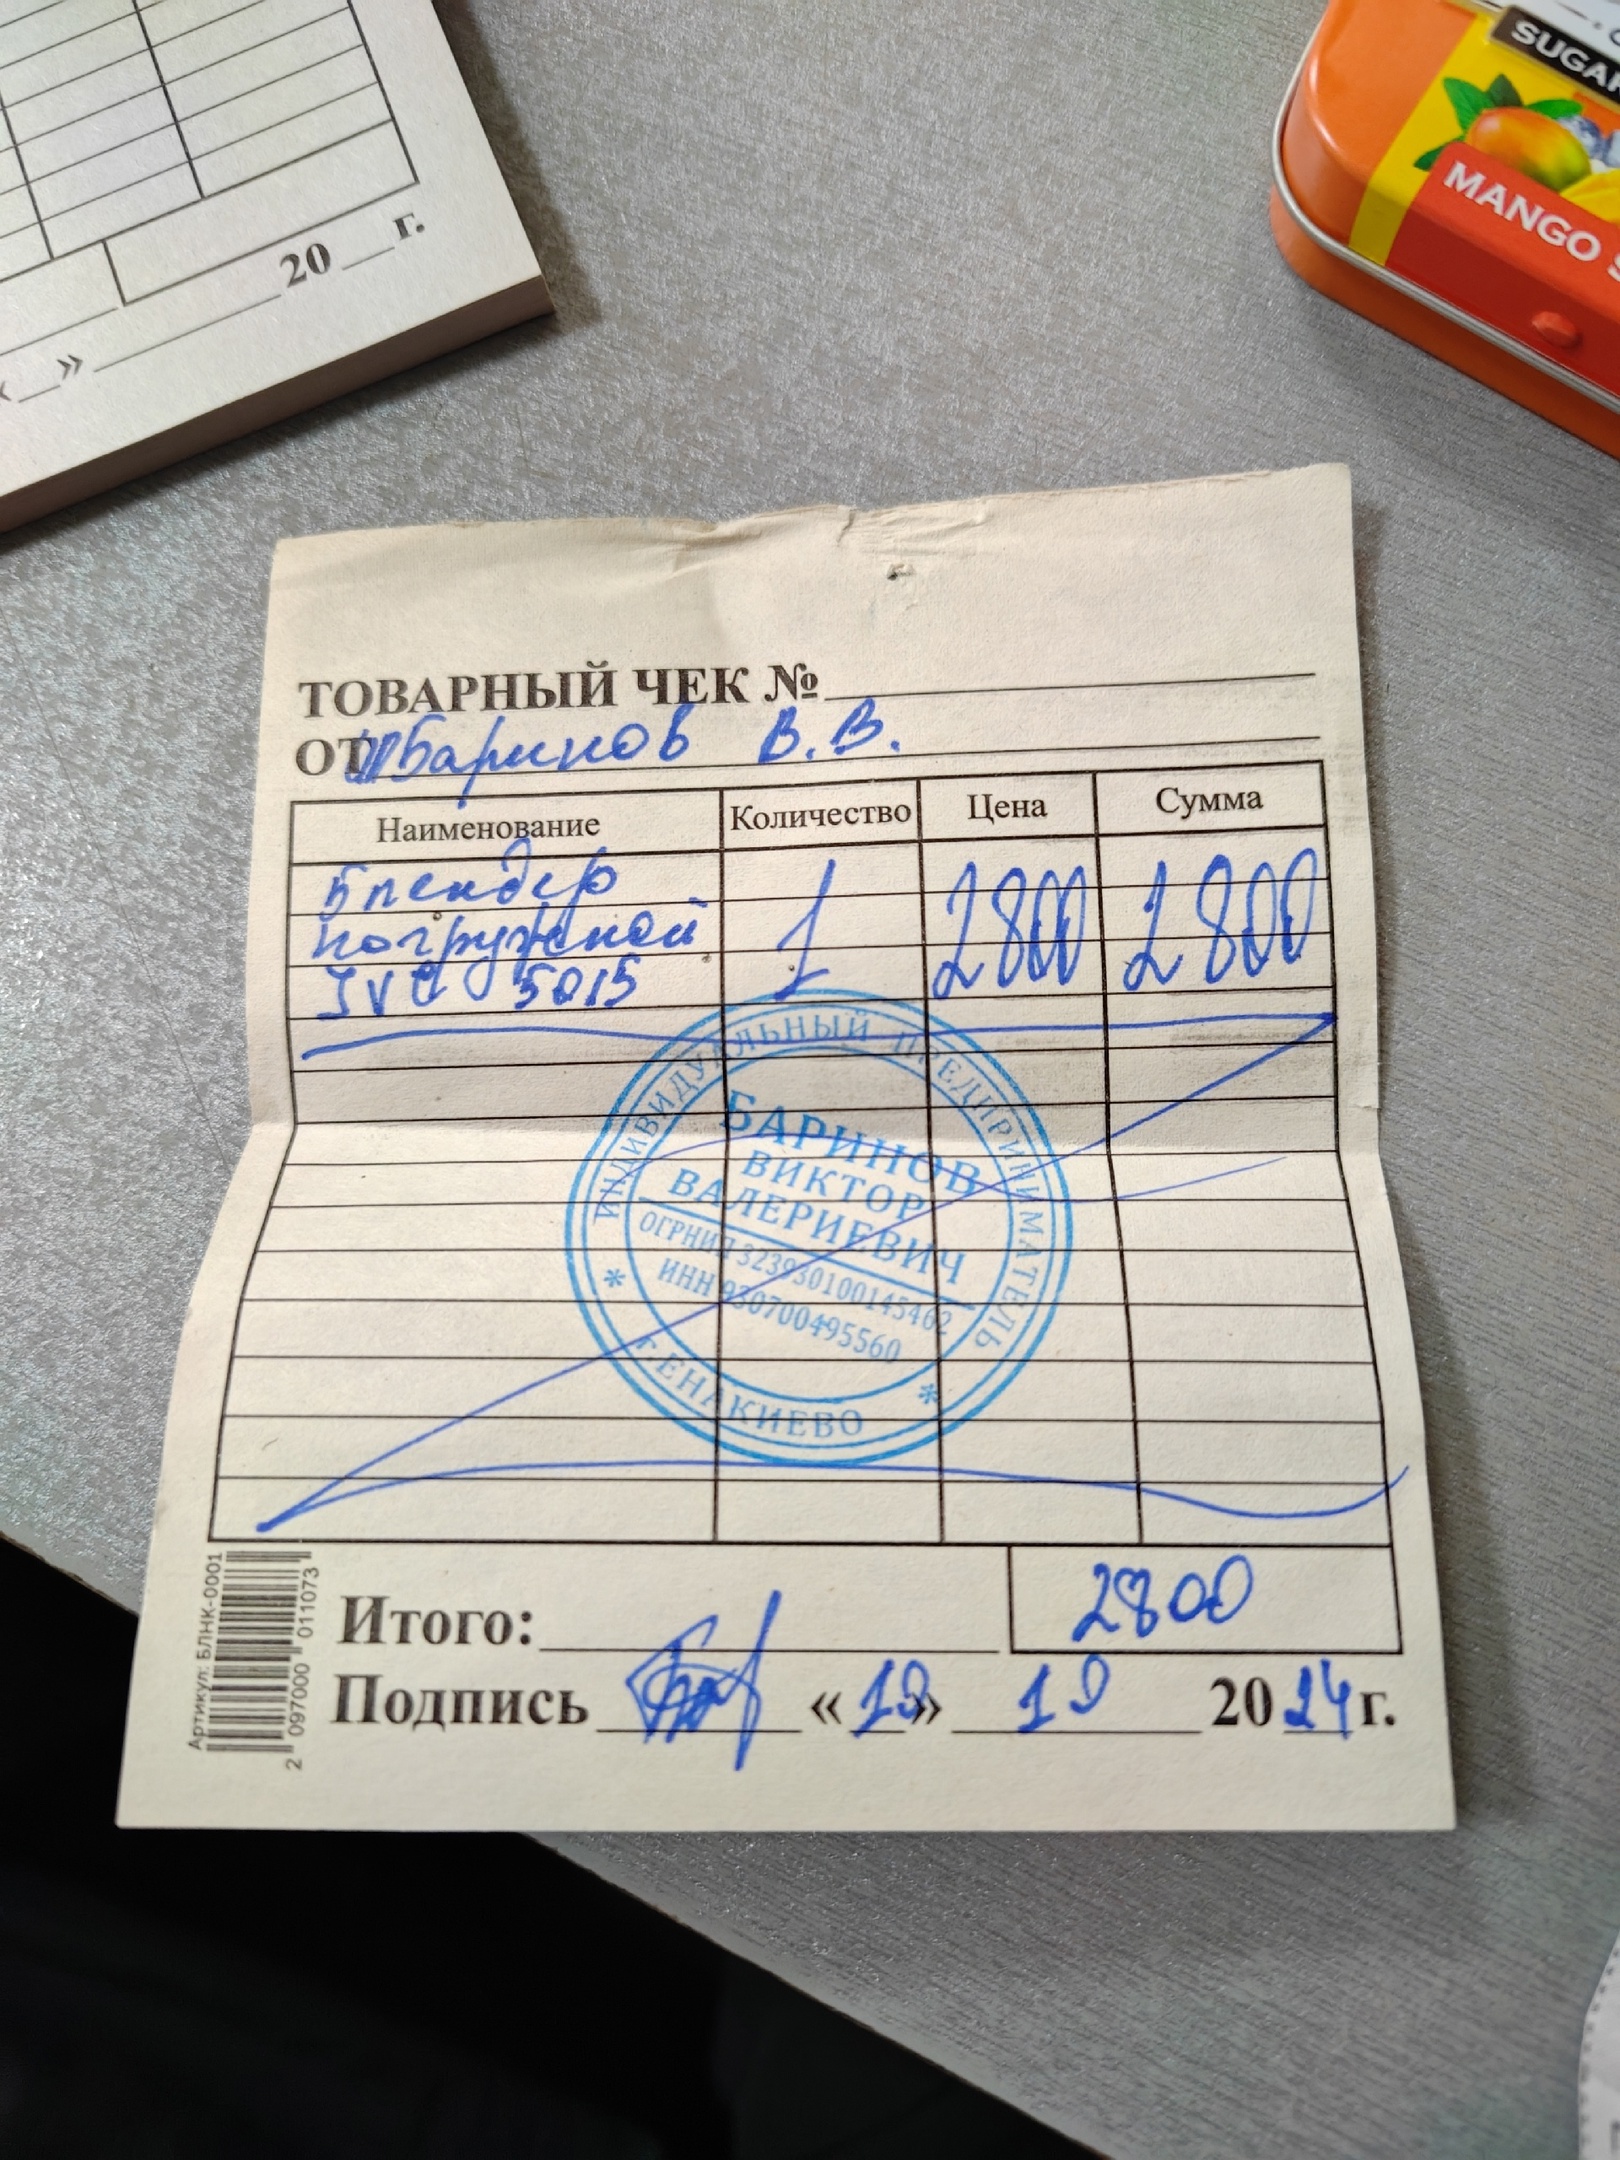 20 __ г.
« __ » ____________
SUGAR
MANGO
ТОВАРНЫЙ ЧЕК №
ОТ Баринов В.В.
Наименование Количество Цена Сумма
Блендер
погружной
JVC 5015 1 2800 2800
ИНДИВИДУАЛЬНЫЙ ПРЕДПРИНИМАТЕЛЬ
БАРИНОВ
ВИКТОР
ВАЛЕРИЕВИЧ
ОГРНИП 323930100145462
ИНН 930700495560
* г.ЕНАКИЕВО *
Итого: 2800
Подпись «19» 19 2024 г.
Артикул: БЛНК-0001
2 097000 011073